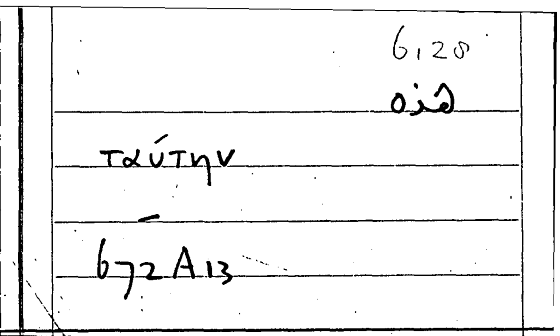 6,28
هذه
ταύτην
–
672 A 13